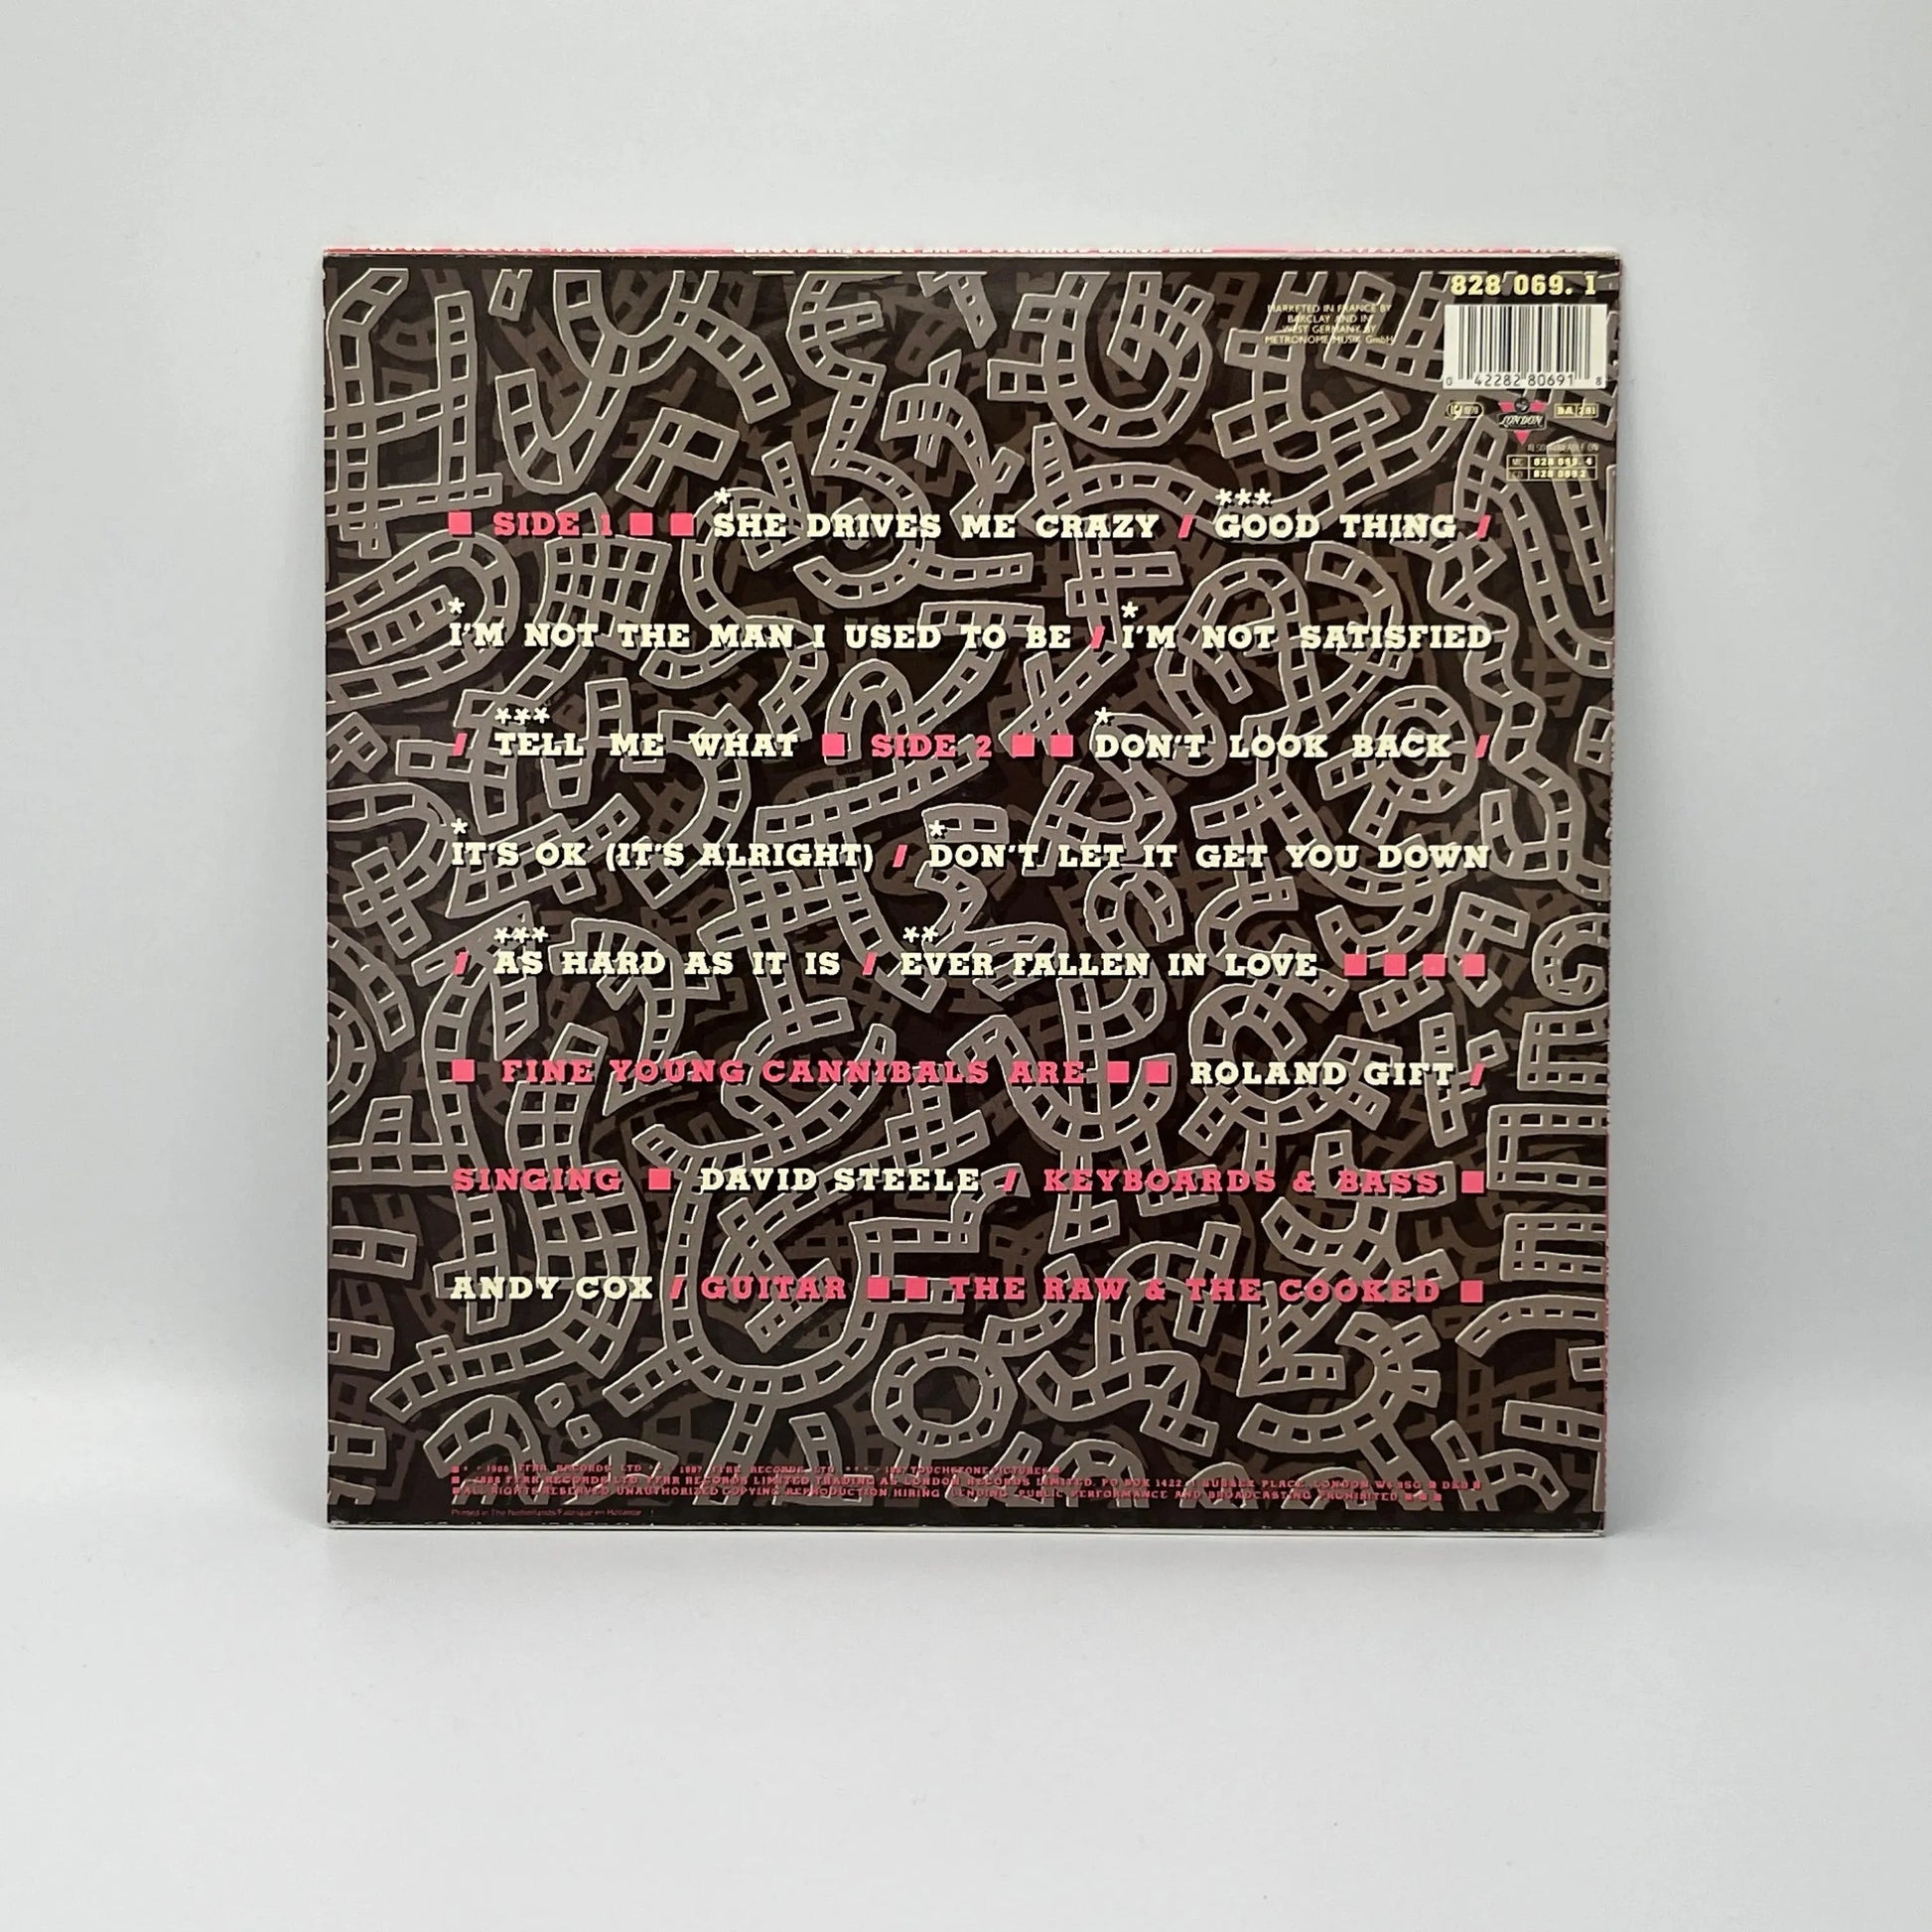 828 069. 1
MARKETED IN FRANCE BY
BARCLAY AND IN
WEST GERMANY BY
METRONOME MUSIK GmbH
0 42282 80691 8
LONDON
ALSO AVAILABLE ON
MC 828 069. 4
CD 828 069.2
■ SIDE 1 ■ ■ *SHE DRIVES ME CRAZY / ***GOOD THING /
*I'M NOT THE MAN I USED TO BE / *I'M NOT SATISFIED
/ ***TELL ME WHAT ■ SIDE 2 ■ ■ *DON'T LOOK BACK /
*IT'S OK (IT'S ALRIGHT) / *DON'T LET IT GET YOU DOWN
/ ***AS HARD AS IT IS / **EVER FALLEN IN LOVE ■ ■ ■ ■
■ FINE YOUNG CANNIBALS ARE ■ ■ ROLAND GIFT /
SINGING ■ DAVID STEELE / KEYBOARDS & BASS ■
ANDY COX / GUITAR ■ ■ THE RAW & THE COOKED ■
■ * 1988 FFRR RECORDS LTD ** 1987 FFRR RECORDS LTD *** 1987 TOUCHSTONE PICTURES ■
■ 1988 FFRR RECORDS LTD FFRR RECORDS LIMITED TRADING AS LONDON RECORDS LIMITED, PO BOX 1422, SUSSEX PLACE, LONDON W6 9SG ■
■ ALL RIGHTS RESERVED UNAUTHORIZED COPYING REPRODUCTION HIRING LENDING PUBLIC PERFORMANCE AND BROADCASTING PROHIBITED ■ ■ ■
Printed in The Netherlands/Fabriqué en Hollande